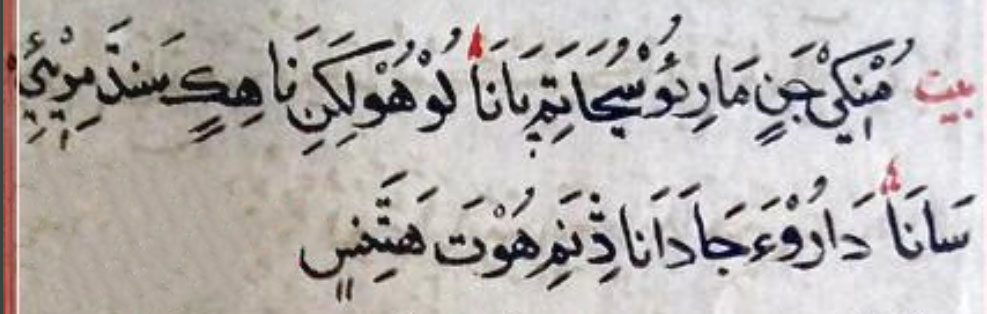 بيت مُنْکِيْ جَنِ مَارِئُوْ سُڃَاتَمِ پَانَا لُوْهُوْ لِکَنِ نَا هِڪِ سَندَّ
سَانَا دَارُوْءَ جَا دَانَا ڏِنَمِ هُوْتَ هَتَّنسِ